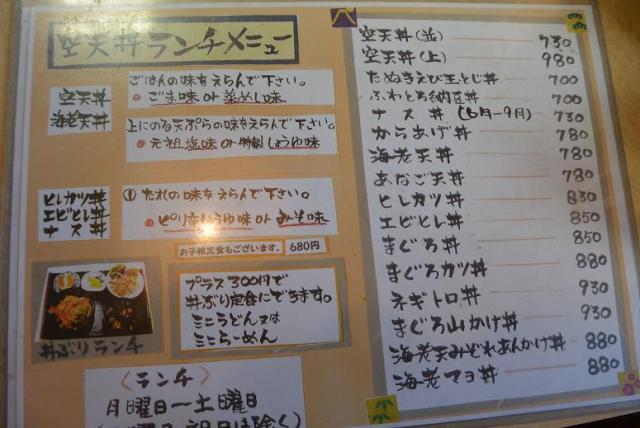 空天丼ランチメニュー
空天丼
海老天丼
ごはんの味をえらんで下さい。
ごま味 or 菜めし味
上にのる天ぷらの味をえらんで下さい。
元祖塩味 or 特製しょうゆ味
ヒレカツ丼
エビヒレ丼
ナス丼
① たれの味をえらんで下さい。
ピリ辛しょうゆ味 or みそ味
お子様定食もございます。 680円
丼ぶりランチ
プラス300円で
丼ぶり定食にできます。
ミニうどん又は
ミニらーめん
〈ランチ〉
月曜日〜土曜日
祝日は除く)
空天丼(並) 730
空天丼(上) 980
たぬきえび玉とじ丼 700
ふわとろ納豆丼 700
ナス丼 (6月-9月) 730
からあげ丼 780
海老天丼 780
あなご天丼 780
ヒレカツ丼 830
エビヒレ丼 850
まぐろ丼 850
まぐろカツ丼 880
ネギトロ丼 930
まぐろ山かけ丼 930
海老天みぞれあんかけ丼 880
海老マヨ丼 880